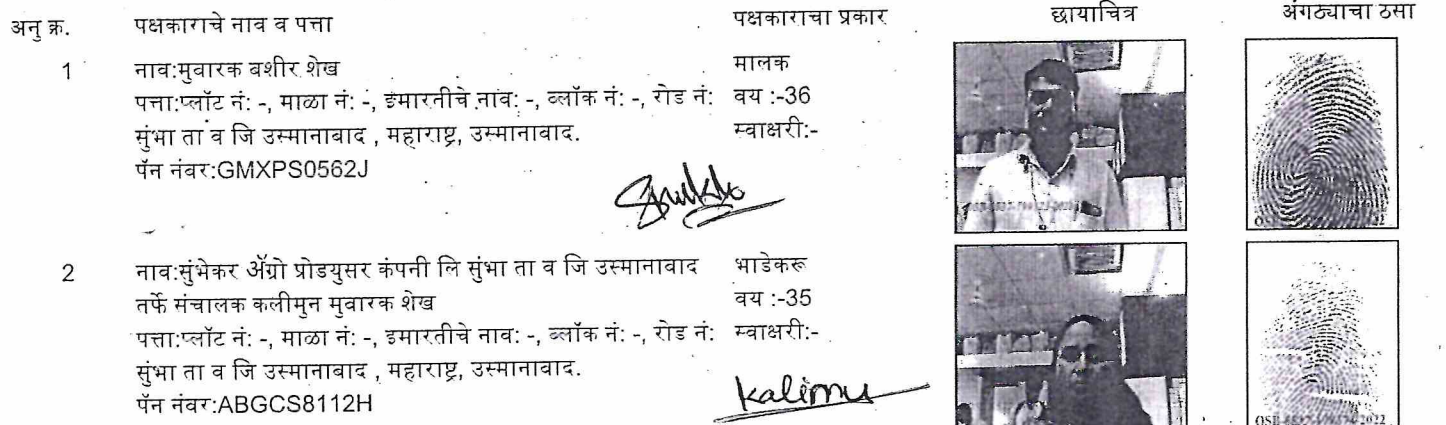 अनु क्र. पक्षकाराचे नाव व पत्ता पक्षकाराचा प्रकार छायाचित्र अंगठ्याचा ठसा
1 नाव:मुबारक बशीर शेख मालक
पत्ता:प्लॉट नं: -, माळा नं: -, इमारतीचे नाव: -, ब्लॉक नं: -, रोड नं: वय :-36
सुंभा ता व जि उस्मानाबाद , महाराष्ट्र, उस्मानाबाद. स्वाक्षरी:-
पॅन नंबर:GMXPS0562J
2 नाव:सुंभेकर ॲग्रो प्रोडयुसर कंपनी लि सुंभा ता व जि उस्मानाबाद भाडेकरू
तर्फे संचालक कलीमुन मुबारक शेख वय :-35
पत्ता:प्लॉट नं: -, माळा नं: -, इमारतीचे नाव: -, ब्लॉक नं: -, रोड नं: स्वाक्षरी:-
सुंभा ता व जि उस्मानाबाद , महाराष्ट्र, उस्मानाबाद.
पॅन नंबर:ABGCS8112H
Kalimu